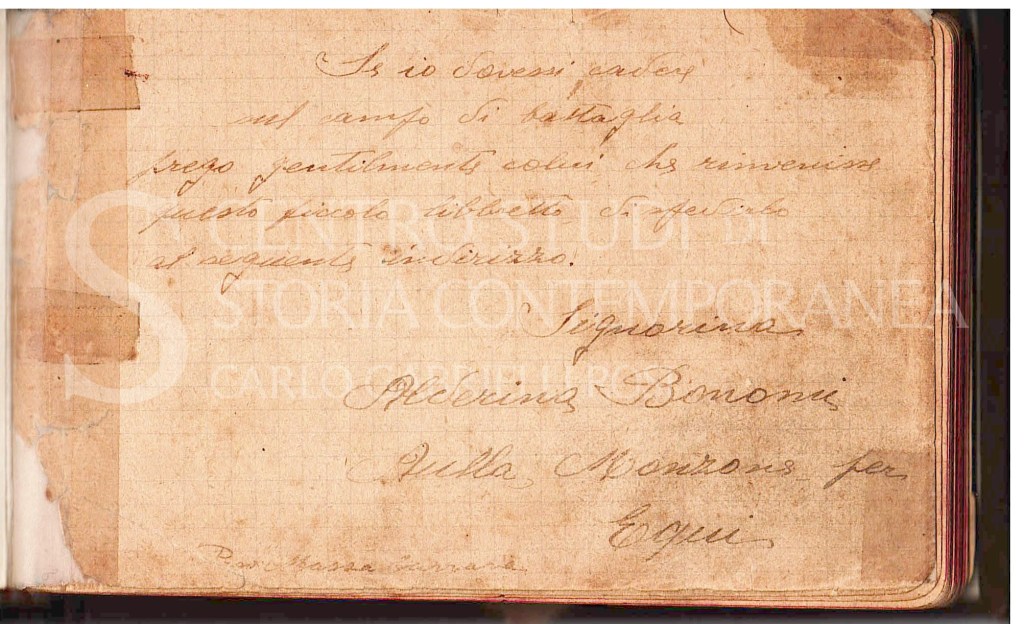 Se io dovessi cadere
sul campo di battaglia
prego gentilmente colui che rinvenisse
questo piccolo libbretto di spedirlo
al seguente indirizzo.
Signorina
Alderina Bononi
Aulla Monzone per
Equi
Prov. Massa Carrara
CENTRO STUDI DI
STORIA CONTEMPORANEA
CARLO